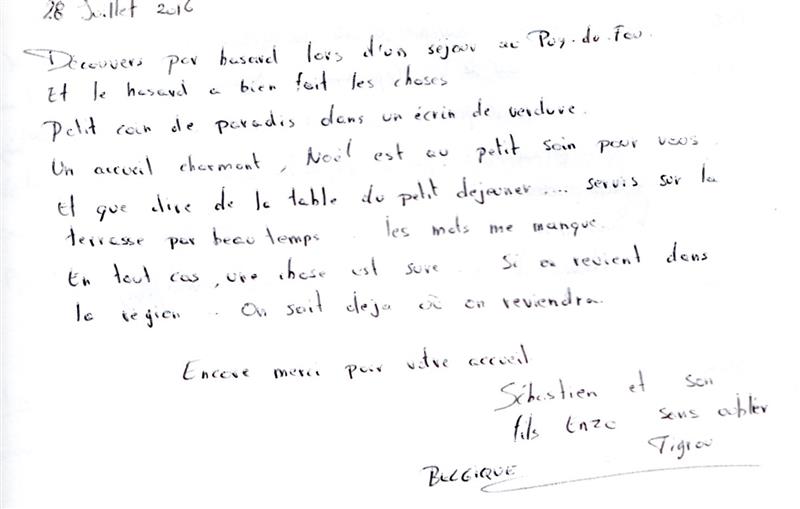 28 Juillet 2016
Découvers par hasard lors d'un séjour au Puy-du-Fou.
Et le hasard a bien fait les choses
Petit coin de paradis dans un écrin de verdure.
Un accueil charmant, Noël est au petit soin pour vous.
Et que dire de la table du petit dejeuner.... servis sur la
terrasse par beau temps les mots me manque.
En tout cas, une chose est sure. Si on revient dans
la région. On sait deja où on reviendra.
Encore merci pour votre accueil
Sébastien et son
fils Enzo sans oublier
Tigrou
BELGIQUE